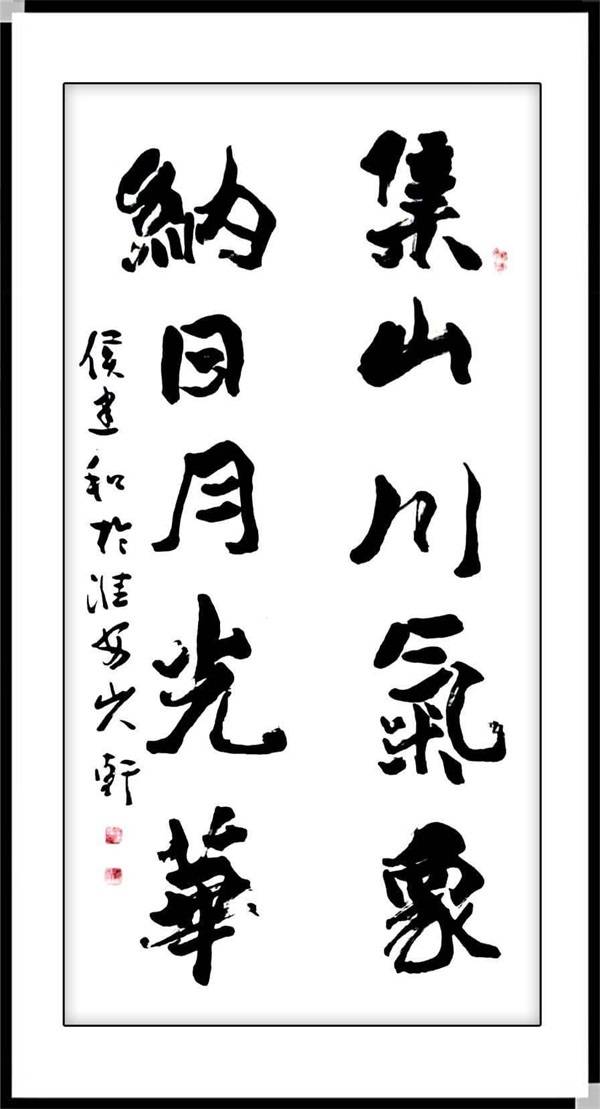 集山川氣象
納日月光華
侯建和於淮安